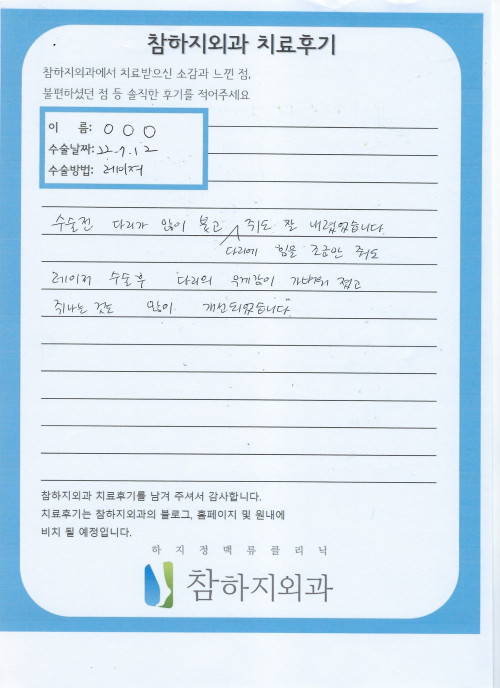 참하지외과 치료후기
참하지외과에서 치료받으신 소감과 느낀 점,
불편하셨던 점 등 솔직한 후기를 적어주세요
이 름: O O O
수술날짜: 22.7.12
수술방법: 레이저
수술전 다리가 많이 붓고 쥐도 잘 내렸었습니다.
다리에 힘을 조금만 줘도
레이저 수술후 다리의 무게감이 가벼워 졌고
쥐나는 것도 많이 개선되었습니다
참하지외과 치료후기를 남겨 주셔서 감사합니다.
치료후기는 참하지외과의 블로그, 홈페이지 및 원내에
비치 될 예정입니다.
하지정맥류클리닉
참하지외과